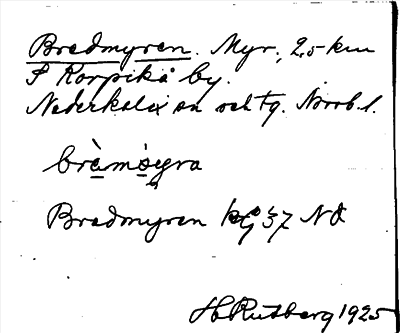 Bredmyren. Myr, 2,5 km
S Korpikå by.
Nederkalix sn och tg. Norrb. l.
brèmöyra
Bredmyren kg 37 NO
H. Rutberg 1925